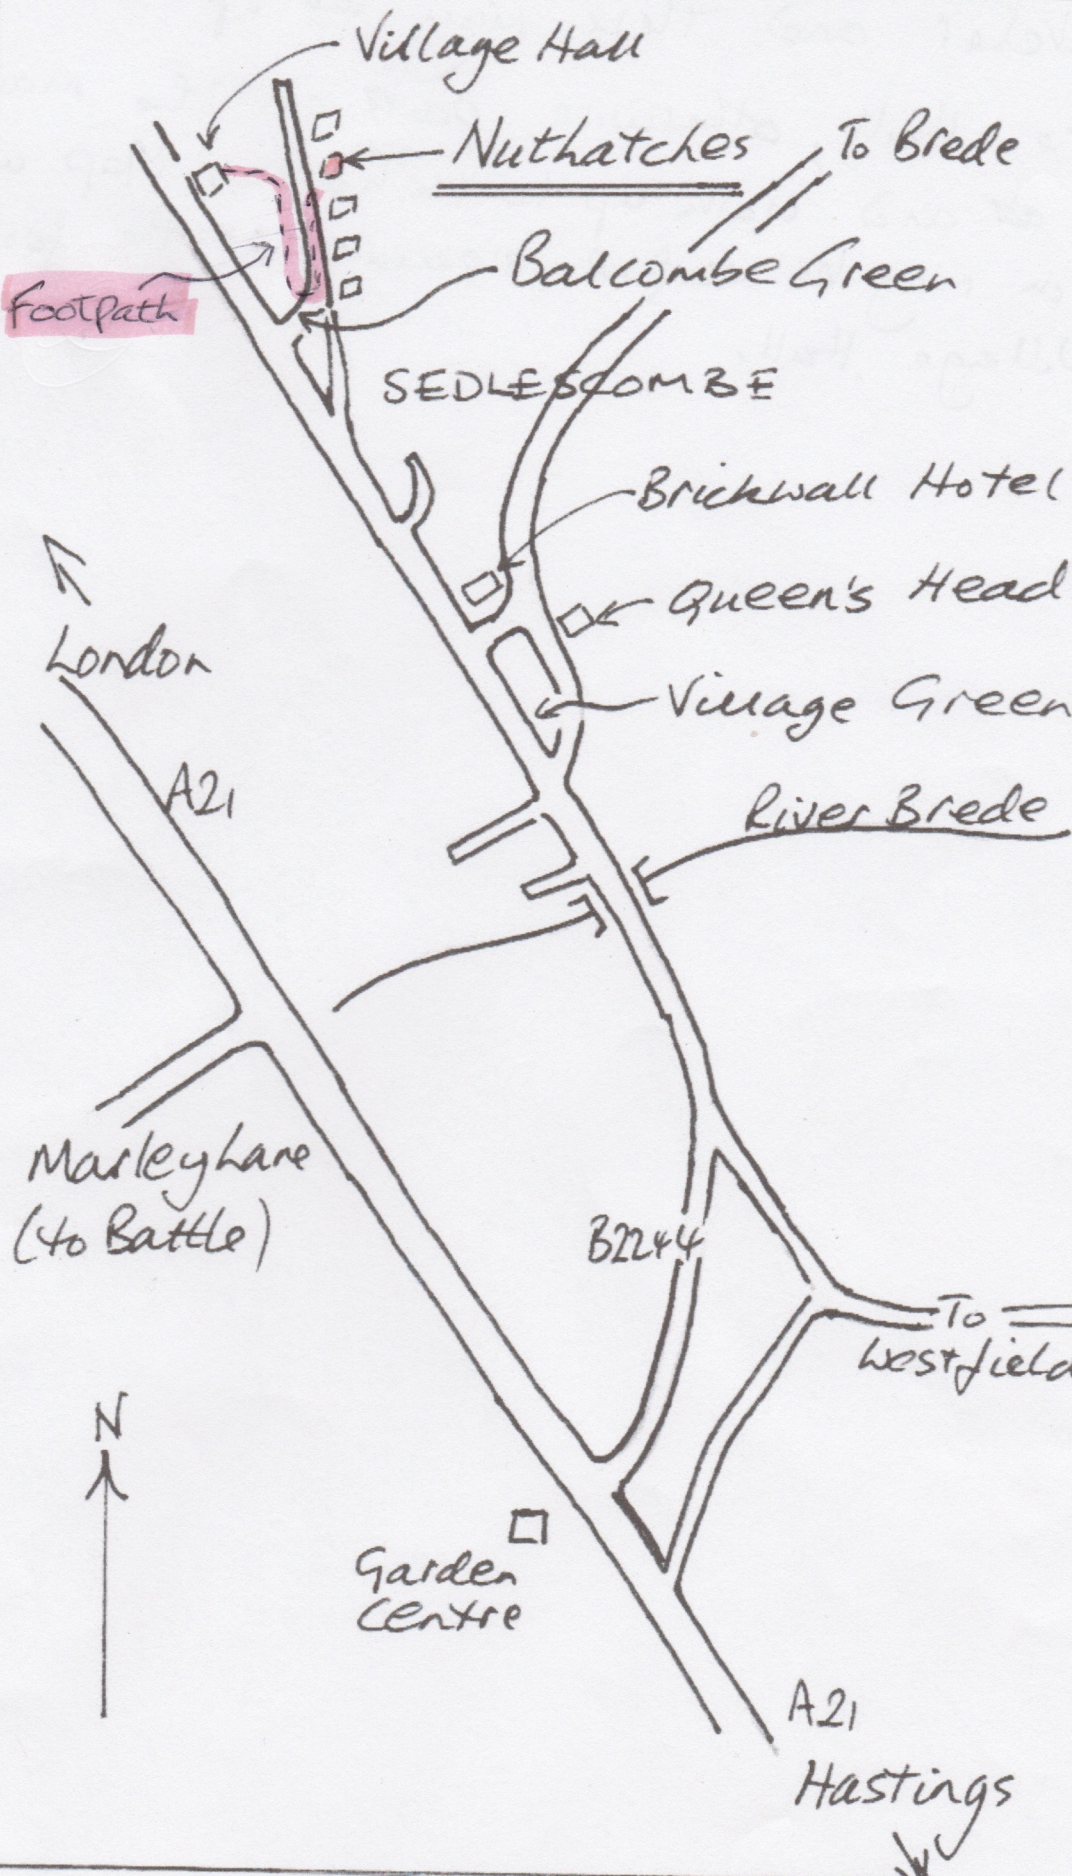 Village Hall
Nuthatches
To Brede
Balcombe Green
Footpath
SEDLESCOMBE
Brickwall Hotel
Queen's Head
London
Village Green
A21
River Brede
Marley Lane
(to Battle)
B2244
To
Westfield
N
Garden
Centre
A21
Hastings